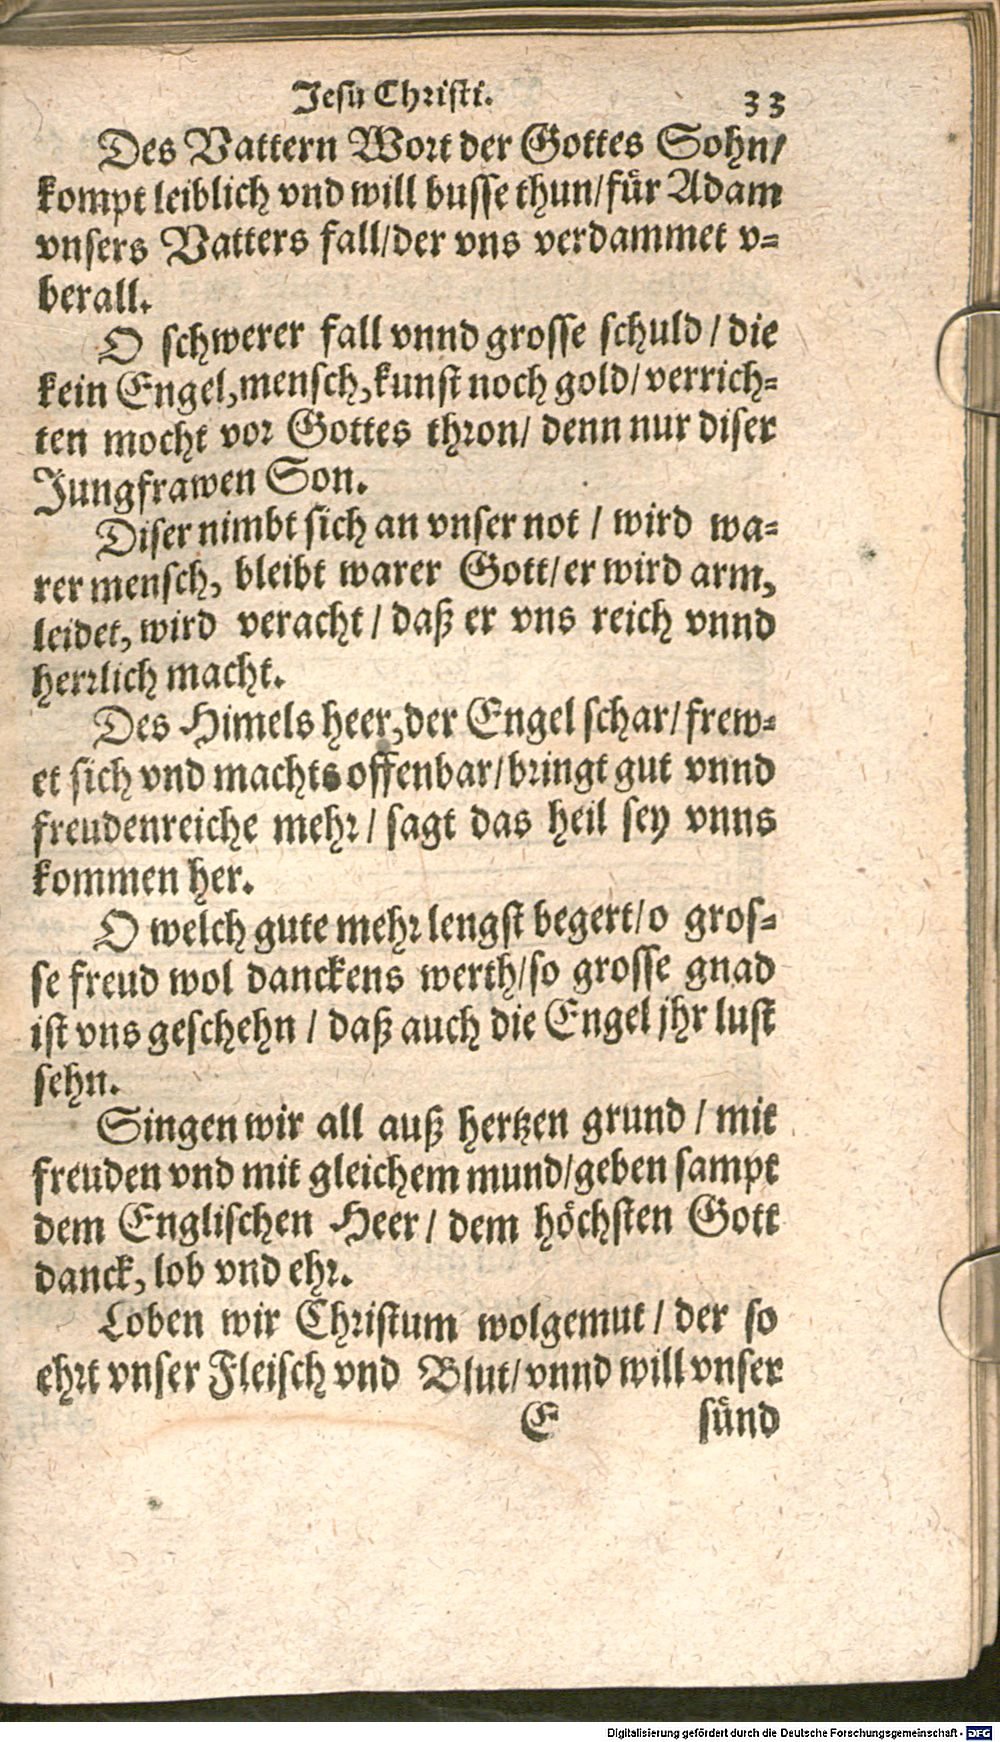 Jesu Christi. 33
Des Vattern Wort der Gottes Sohn/
kompt leiblich vnd will busse thun/für Adam
vnsers Vatters fall/der vns verdammet v=
berall.
O schwerer fall vnnd grosse schuld / die
kein Engel, mensch, kunst noch gold/ verrich=
ten mocht vor Gottes thron/ denn nur diser
Jungfrawen Son.
Diser nimbt sich an vnser not / wird wa=
rer mensch, bleibt warer Gott/ er wird arm,
leidet, wird veracht / daß er vns reich vnnd
herrlich macht.
Des Himels heer, der Engel schar/ frew=
et sich vnd machts offenbar/ bringt gut vnnd
freudenreiche mehr / sagt das heil sey vnns
kommen her.
O welch gute mehr lengst begert/o gros=
se freud wol danckens werth/so grosse gnad
ist vns geschehn / daß auch die Engel jhr lust
sehn.
Singen wir all auß hertzen grund / mit
freuden vnd mit gleichem mund/geben sampt
dem Englischen Heer / dem höchsten Gott
danck, lob vnd ehr.
Loben wir Christum wolgemut / der so
ehrt vnser Fleisch vnd Blut/ vnnd will vnser
E sünd
Digitalisierung gefördert durch die Deutsche Forschungsgemeinschaft - DFG